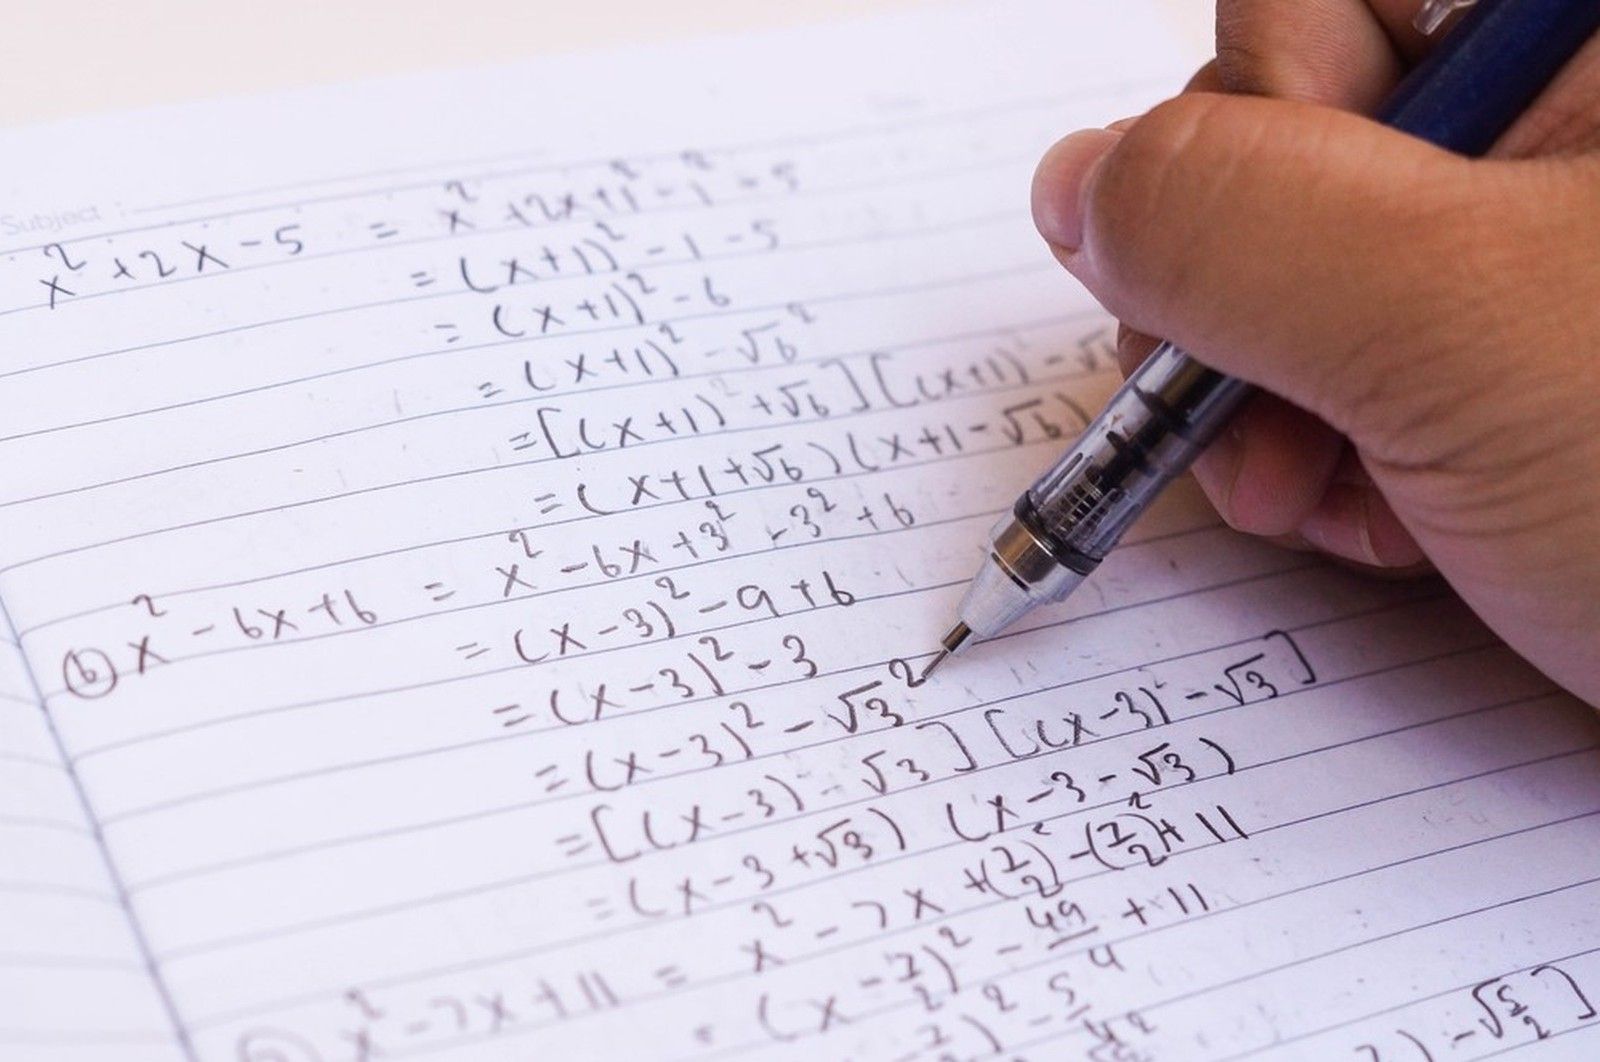 Subject :
x² + 2x - 5 = x² + 2x + 1² - 1² - 5
= (x+1)² - 1 - 5
= (x+1)² - 6
= (x+1)² - √6²
= [(x+1)² + √6] [(x+1)² - √6
= (x+1+√6) (x+1-√6)
ⓑ x² - 6x + 6 = x² - 6x + 3² - 3² + 6
= (x-3)² - 9 + 6
= (x-3)² - 3
= (x-3)² - √3²
= [(x-3) - √3] [(x-3)² - √3]
= (x-3+√3) (x-3-√3)
x² - 7x + 11 = x² - 7x + (7/2)² - (7/2)² + 11
= (x - 7/2)² - 49/4 + 11
)² - 5/4
) - √5/2]